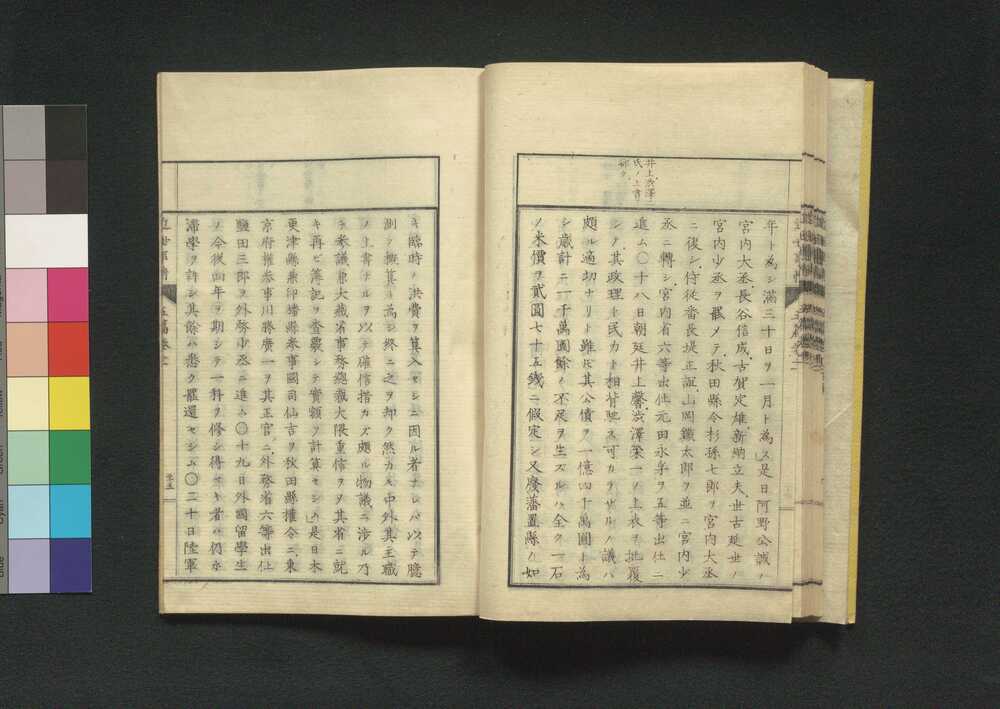 井上澁澤
氏ノ上書
却ク
年ト為シ滿三十日ヲ一月ト為ス是日阿野公誠ノ
宮内大丞長谷信成古賀定雄新納立夫世古延世ノ
宮内少丞ヲ罷メテ秋田縣令杉孫七郎ヲ宮内大丞
ニ後シ侍從番長堤正誼山岡鐵太郎ヲ並ニ宮内少
丞ニ轉シ宮内省六等出仕元田永孚ヲ五等出仕ニ
進ム〇十八日朝廷井上馨澁澤榮一ノ上表ヲ批覆
シ其政理ト民力ト相背馳ス可カラサルノ議ハ
頗ル適切ナリト雖𪜈其公債ヲ一億四千萬圓ト為
シ歳計ニ一千萬圓餘ノ不足ヲ生スルハ全ク一石
ノ米價ヲ貳圓七十五錢ニ假定シ又廢藩置縣ノ如
キ臨時ノ洪費ヲ算入セシニ因ル者ナレハ以テ臆
測ノ概算ト為シ終ニ之ヲ却ク然カモ中外其主職
ノ上書ナルヲ以テ確信措カス頗ル物議ニ渉ル乃
チ參議兼大藏省事務總裁大隈重信ヲメ其省ニ就
キ再ヒ簿記ヲ査覈シテ實額ヲ計算セシム是日木
更津縣兼印旛縣參事國司仙吉ヲ秋田縣權令ニ東
京府權參事川勝廣一ヲ其正官ニ外務省六等出仕
鹽田三郎ヲ外務少丞ニ進ム〇十九日外國留學生
ノ今後四年ヲ期シテ一科ヲ修シ得ヘキ者ハ仍ホ
滯學ヲ許シ其餘ハ悉ク罷還セシム〇二十日陸軍